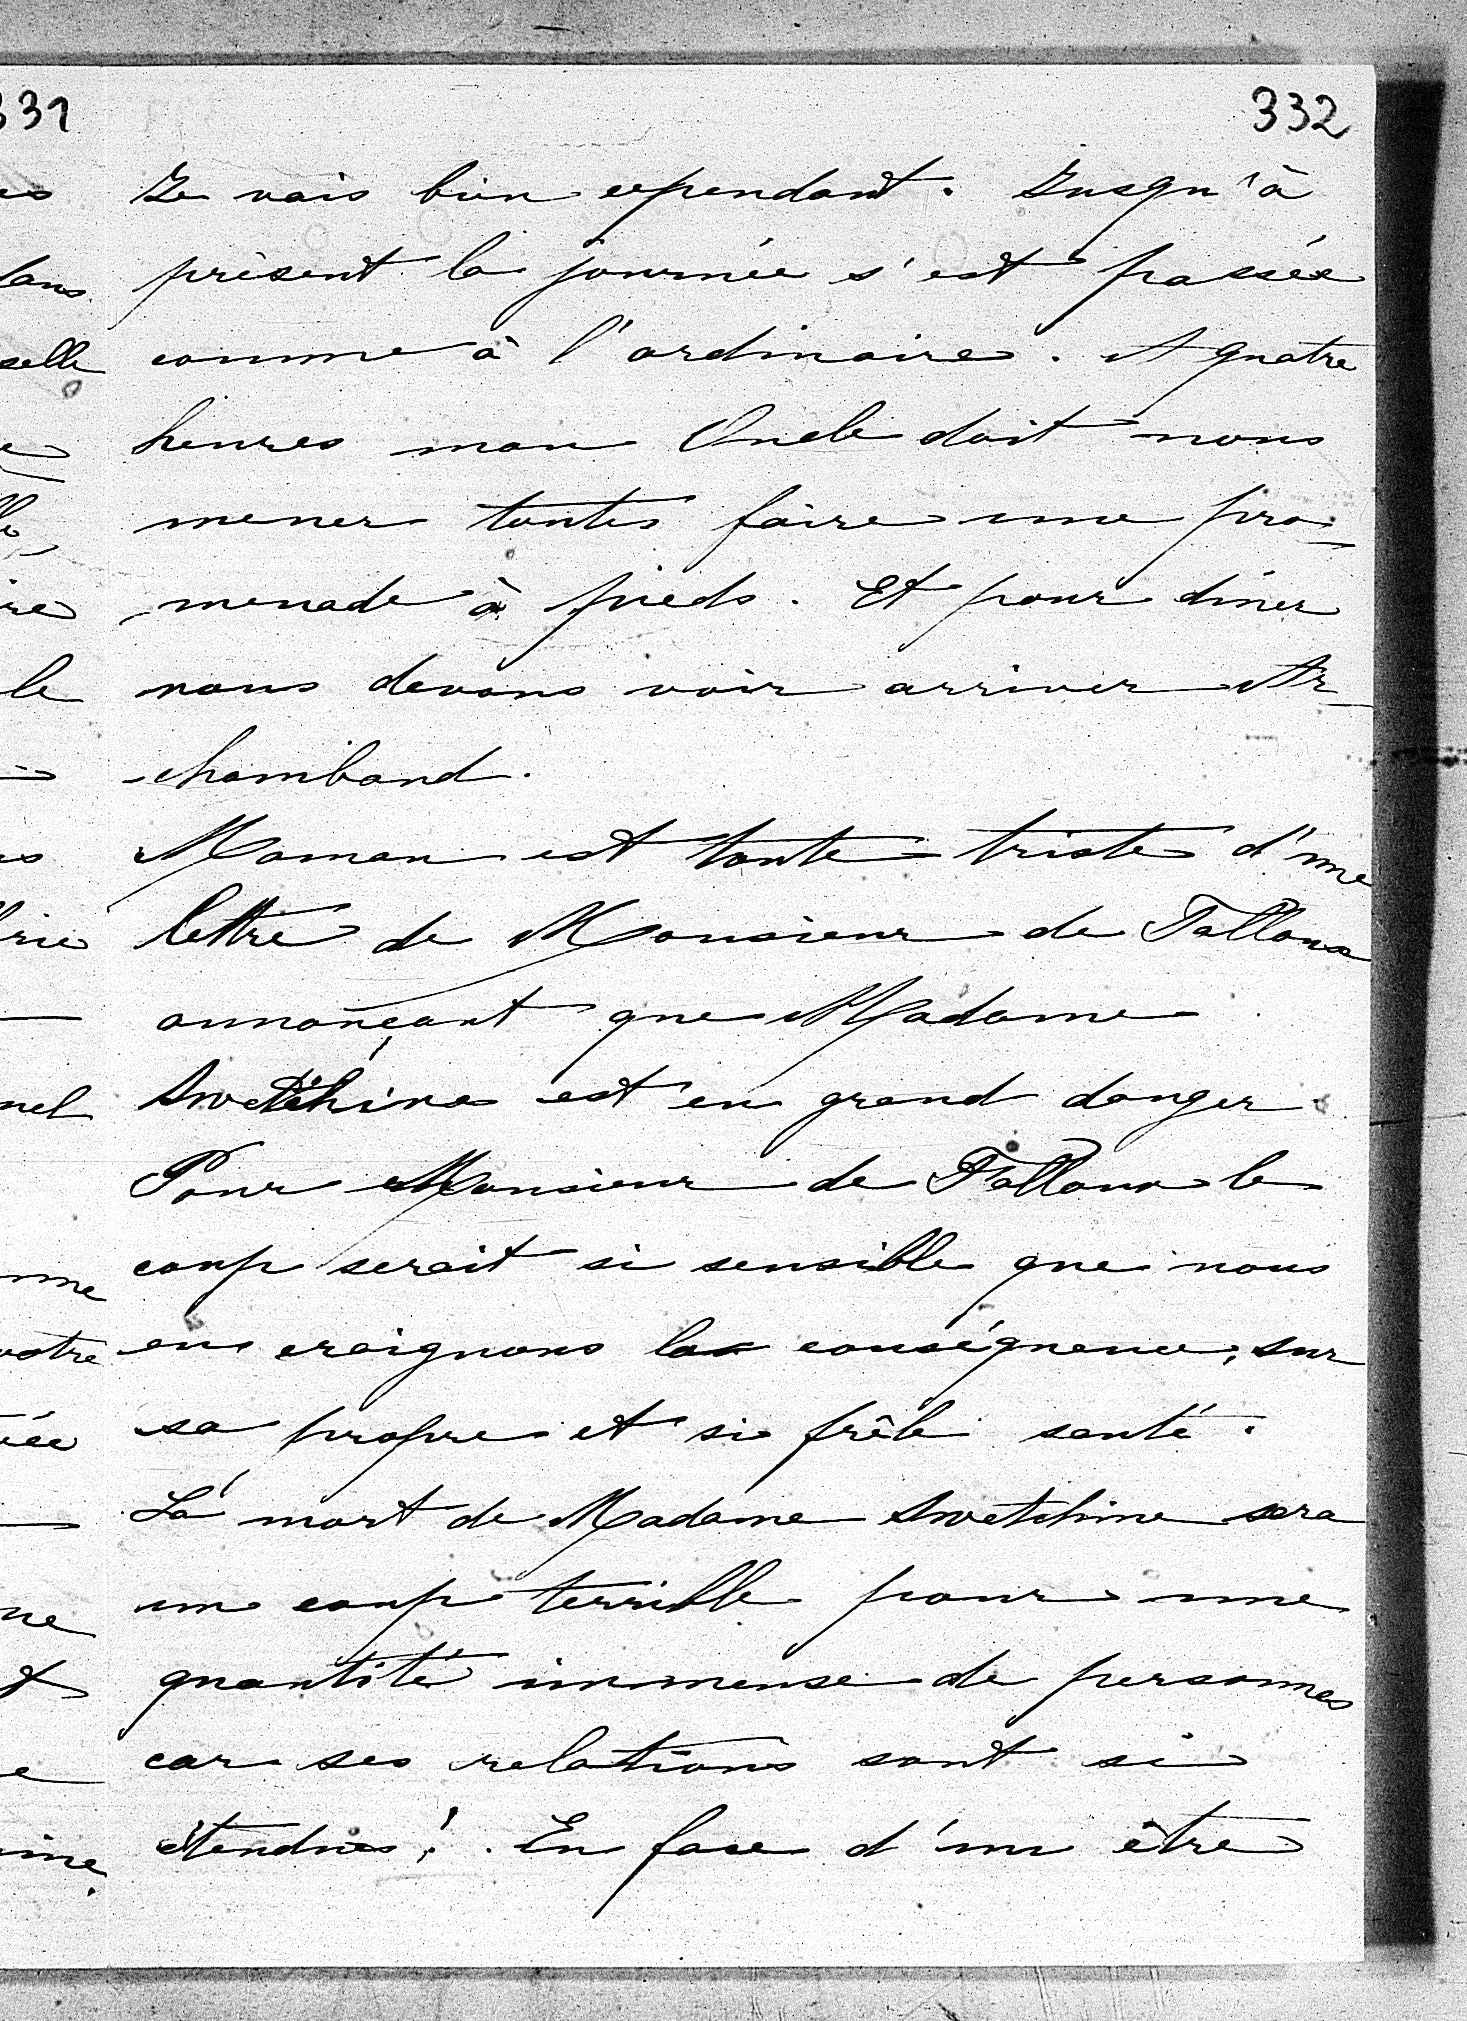 331
332
Je vais bien cependant. Jusqu'à
présent la journée s'est passée
comme à l'ordinaire. A quatre
heures mon Oncle doit nous
mener toutes faire une pro-
menade à pieds. Et pour dîner
nous devons voir arriver Ar-
chambaud.
Maman est toute triste d'une
lettre de Monsieur de Falloux
annonçant que Madame
Swetchine est en grand danger.
Pour Monsieur de Falloux le
coup serait si sensible que nous
en craignons la conséquence, sur
sa propre et si frêle santé.
La mort de Madame Swetchine sera
un coup terrible pour une
quantité immense de personnes
car ses relations sont si
étendues! En face d'un être